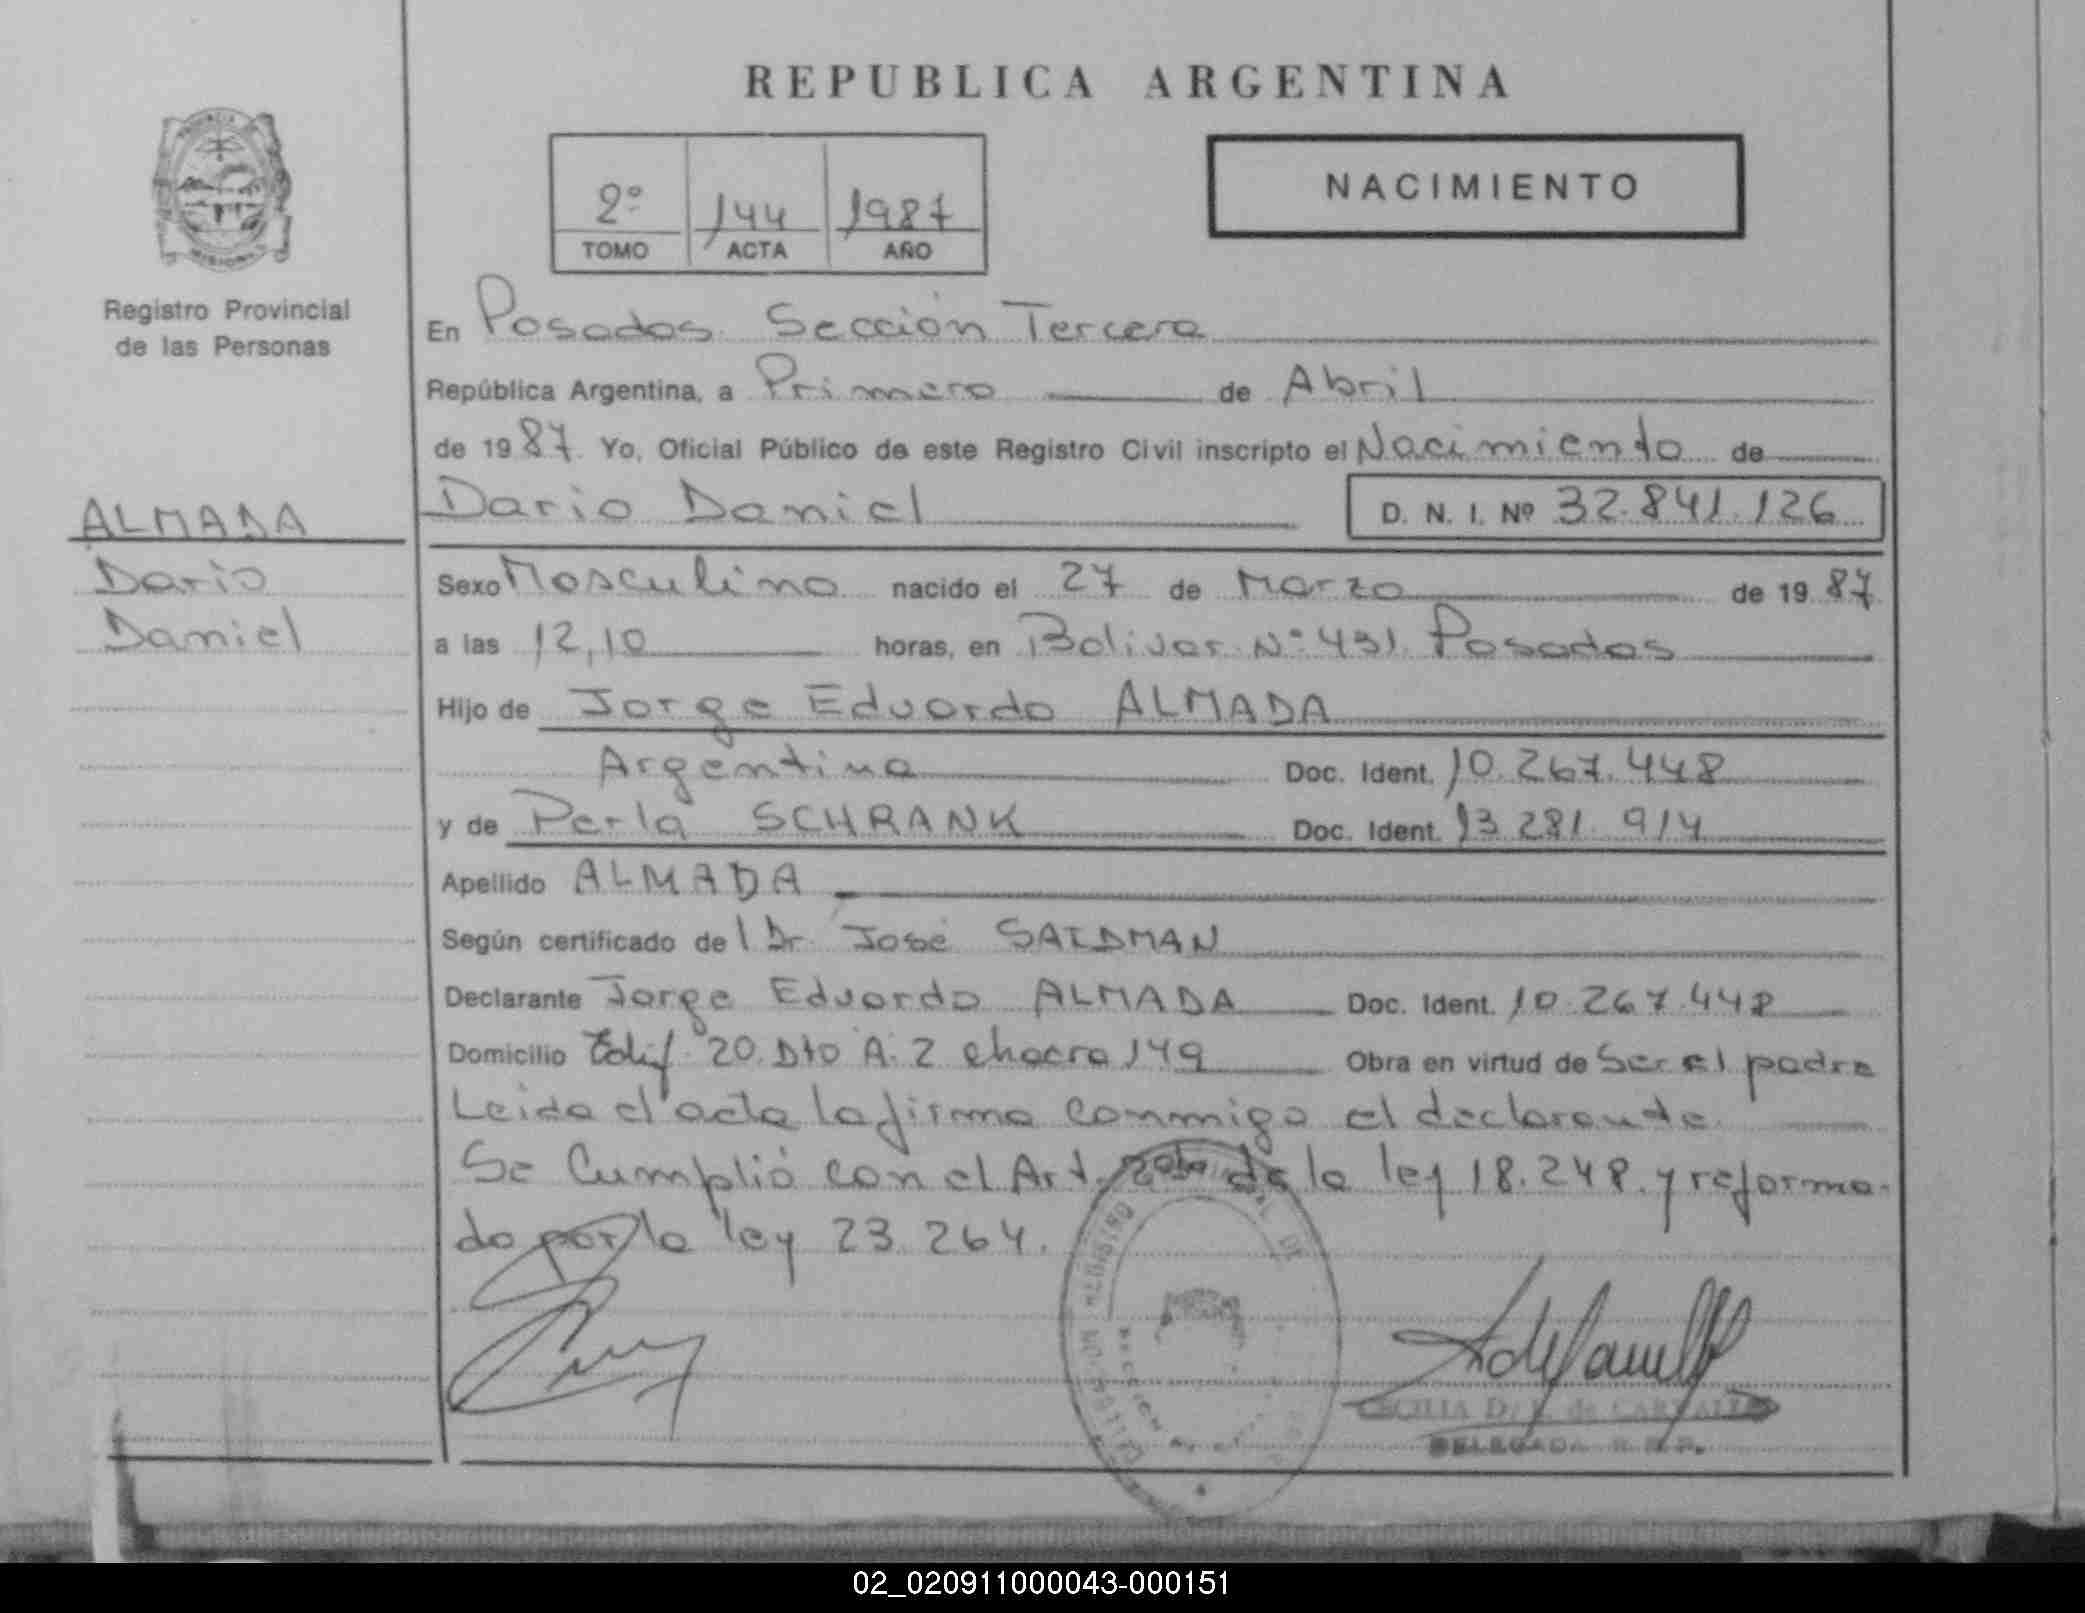 REPUBLICA ARGENTINA
NACIMIENTO
2º 144 1987
TOMO ACTA AÑO
PROVINCIA
MISIONES
Registro Provincial
de las Personas
En Posadas Sección Tercera
República Argentina, a Primero de Abril
de 1987. Yo, Oficial Público de este Registro Civil inscripto el Nacimiento de
Dario Daniel D. N. I. Nº 32.841.126
ALMADA
Dario
Daniel
Sexo Masculino nacido el 27 de Marzo de 1987
a las 12,10 horas, en Bolivar Nº 431 Posadas
Hijo de Jorge Eduardo ALMADA
Argentino Doc. Ident. 10.267.448
y de Perla SCHRANK Doc. Ident. 13.281.914
Apellido ALMADA
Según certificado del Dr. José SAIDMAN
Declarante Jorge Eduardo ALMADA Doc. Ident. 10.267.448
Domicilio Edif. 20. Dto A. 2 chacra 149 Obra en virtud de Ser el padre
Leida el acta la firma conmigo el declarante.
Se Cumplió con el Art. de la ley 18.248 y reforma-
do por la ley 23.264.
DELEGADA R.P.P.
02_020911000043-000151